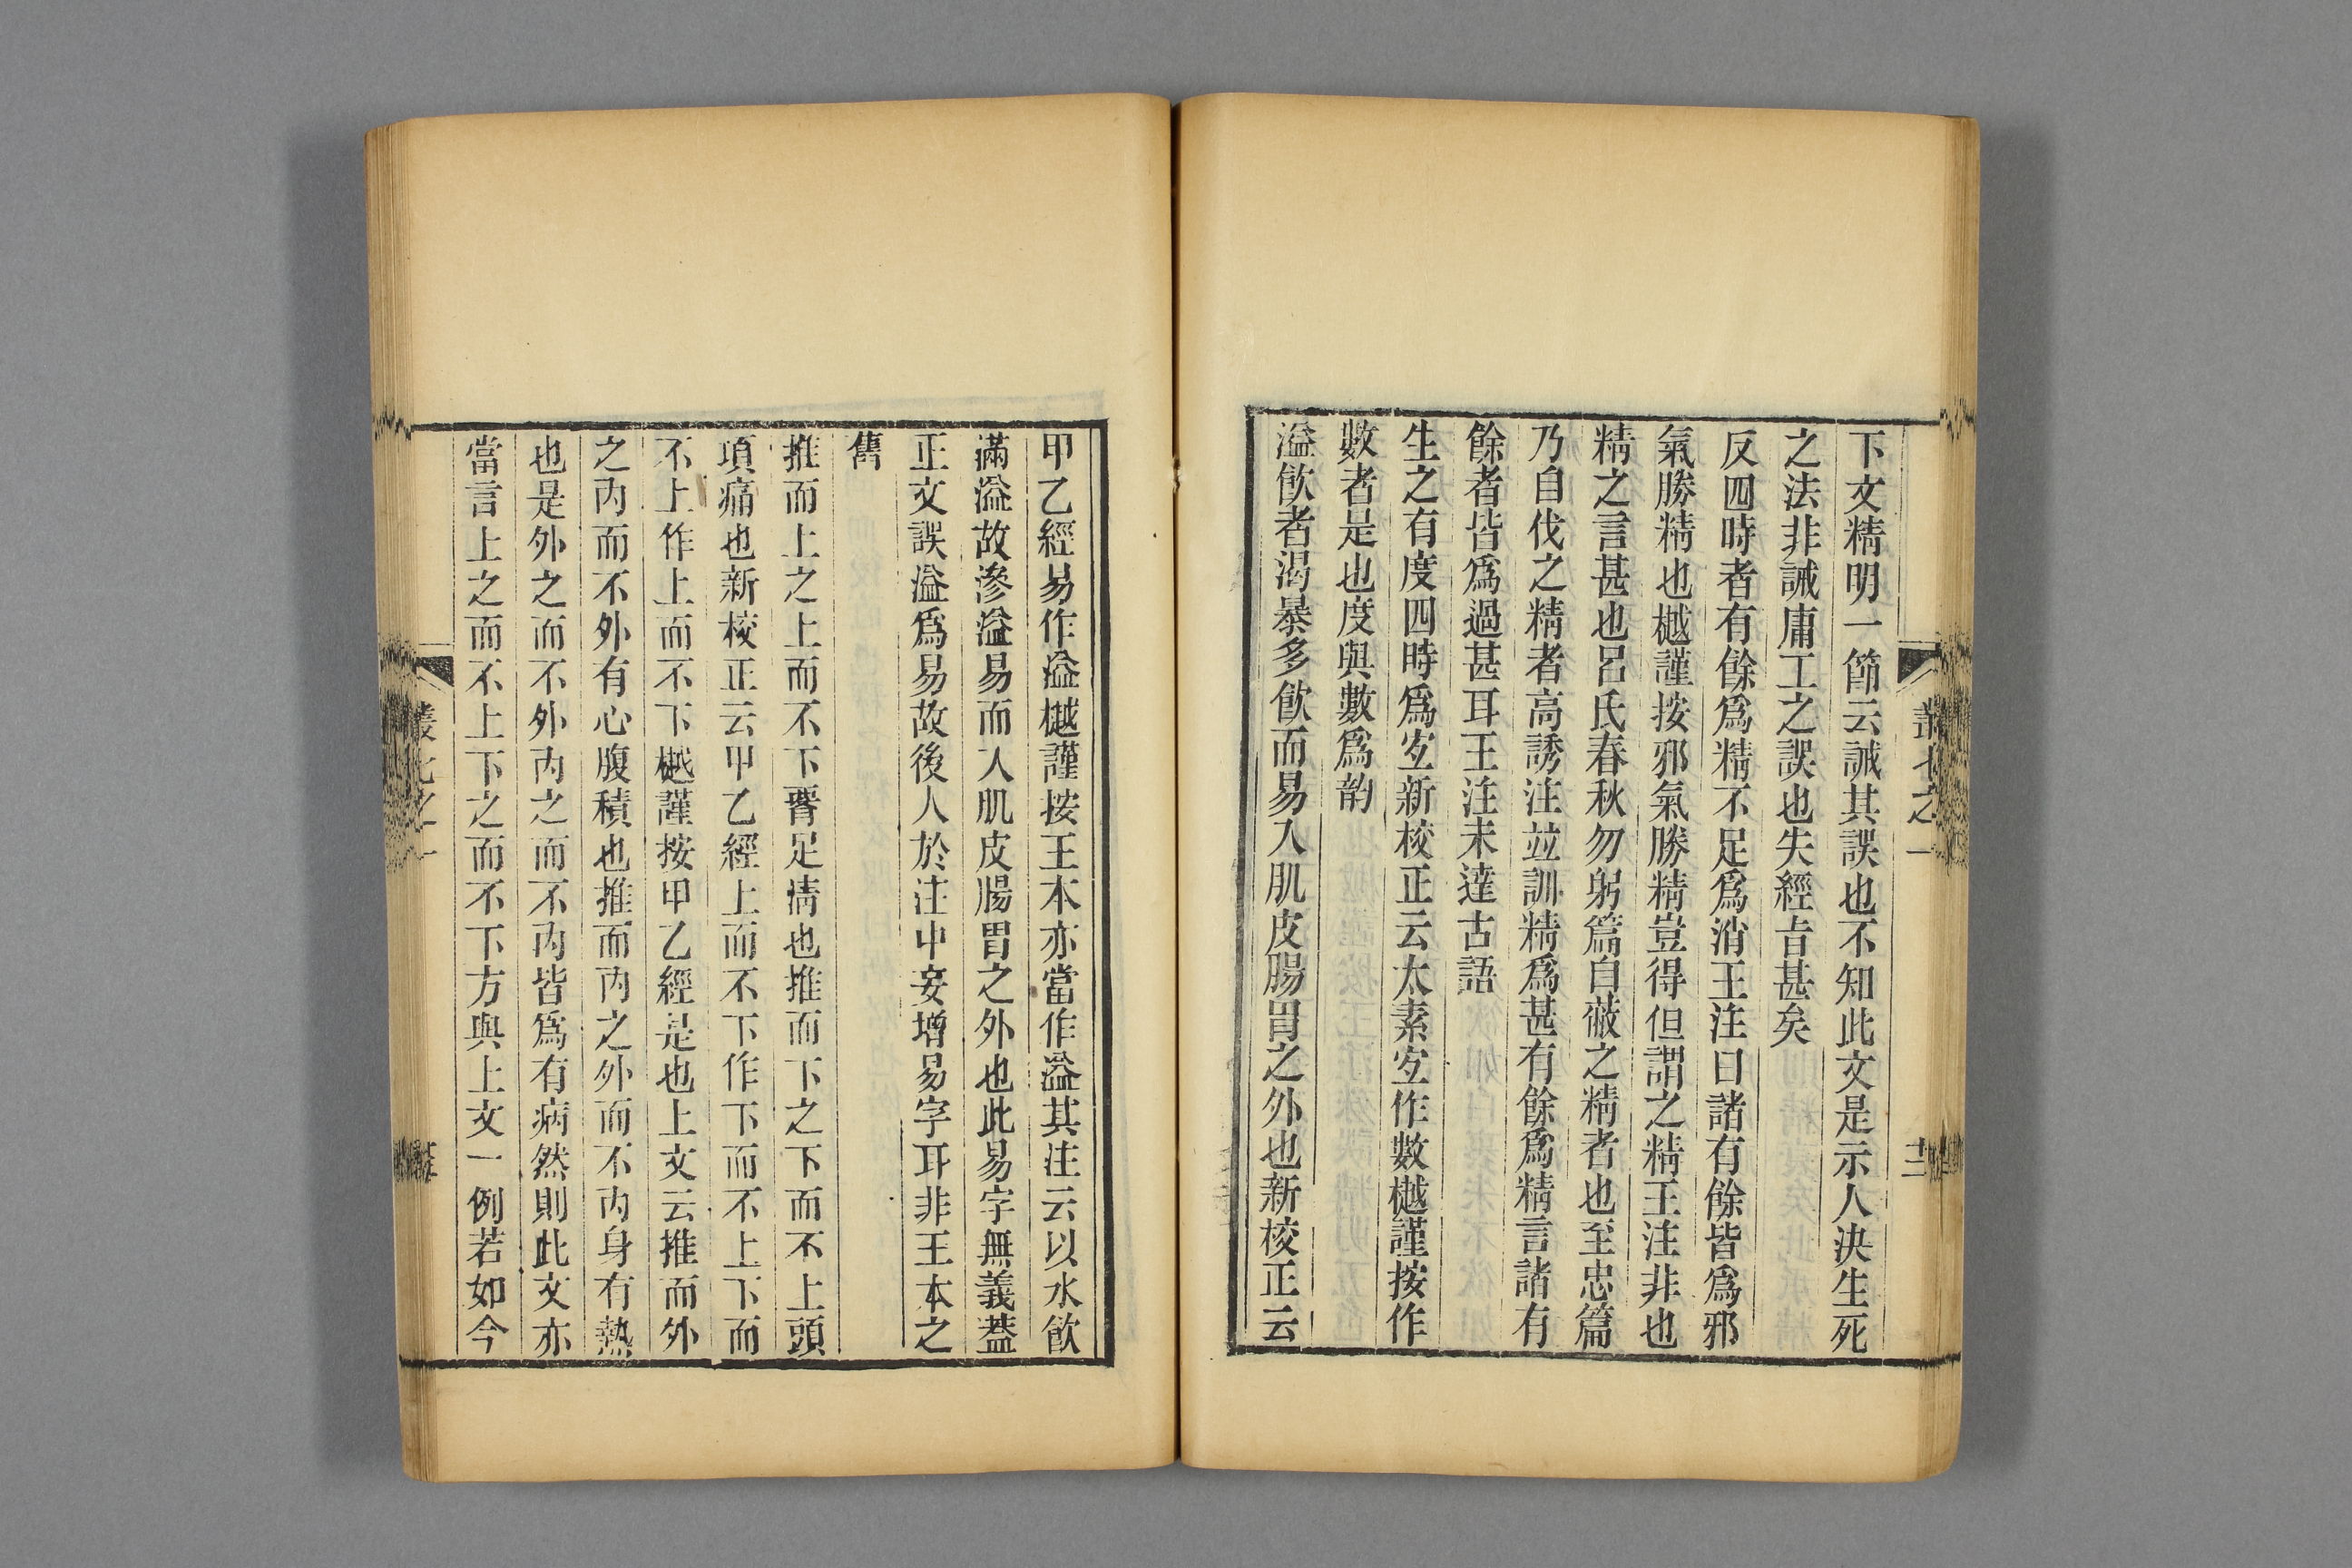 下文精明一節云誡其誤也不知此文是示人決生死
之法非誡庸工之誤也失經旨甚矣
反四時者有餘爲精不足爲消王注曰諸有餘皆爲邪
氣勝精也樾謹按邪氣勝精豈得但謂之精王注非也
精之言甚也呂氏春秋勿躬篇自蔽之精者也至忠篇
乃自伐之精者高誘注竝訓精爲甚有餘爲精言諸有
餘者皆爲過甚耳王注未達古語
生之有度四時爲宐新校正云太素宐作數樾謹按作
數者是也度與數爲韵
溢飮者渴暴多飮而易入肌皮腸胃之外也新校正云
叢七之一
十二
甲乙經易作溢樾謹按王本亦當作溢其注云以水飮
滿溢故滲溢易而入肌皮腸胃之外也此易字無義葢
正文誤溢爲易故後人於注中妄增易字耳非王本之
舊
推而上之上而不下脊足淸也推而下之下而不上頭
項痛也新校正云甲乙經上而不下作下而不上下而
不上作上而不下樾謹按甲乙經是也上文云推而外
之內而不外有心腹積也推而內之外而不內身有熱
也是外之而不外內之而不內皆爲有病然則此文亦
當言上之而不上下之而不下方與上文一例若如今
叢七之一